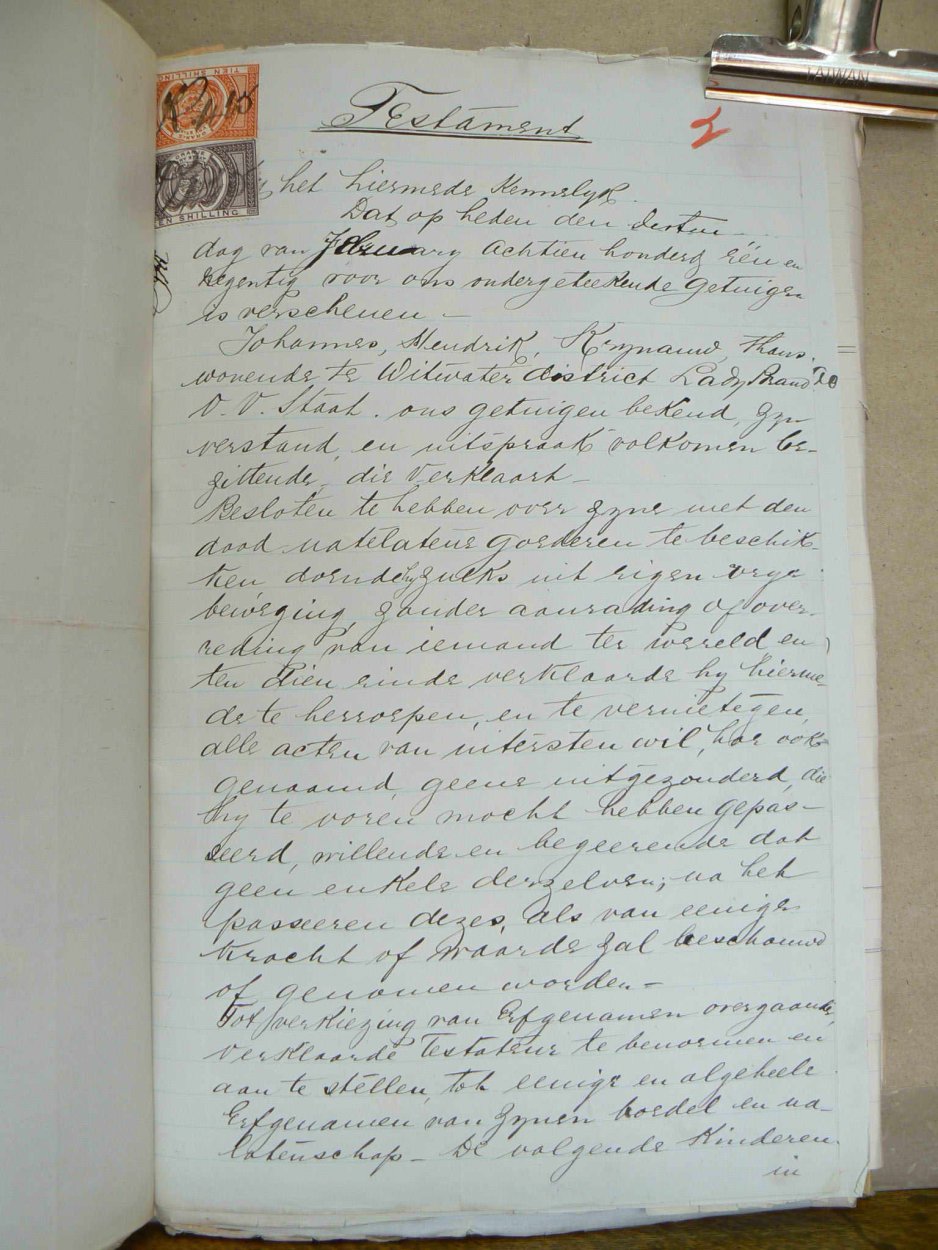 TAIWAN
TIEN SHILLING
TIEN SHILLING
Testament
2
Zy het hiermede Kennelyk.
Dat op heden den Dersten
dag van February Achtien honderd één en
negentig voor ons ondergeteekende getuigen
is verschenen –
Johannes, Hendrik, Krynauw, thans
wonende te Witwater district LadyBrand
O. V. Staat. ons getuigen bekend, zyn
verstand, en uitspraak volkomen be-
zittende, die Verklaart –
Besloten te hebben over zyne met den
dood natelatene goederen te beschik-
ken doende hy zulks uit eigen vrye
beweging, zonder aanrading of over-
reding van iemand ter wereld en
ten dien einde verklaarde hy hierme-
de te herroepen, en te vernietegen,
alle acten van uitersten wil, hoe ook
genaamd, geene uitgezonderd, die
hy te voren mocht hebben gepas-
seerd, willende en begeerende dat
geen enkele derzelven, na het
passeeren dezes, als van eenige
kracht of waarde zal beschouwd
of genomen worden –
Tot verkiezing van Erfgenamen overgaande,
Verklaarde Testateur te benoemen en
aan te stellen, tot eenige en algeheele
Erfgenamen van zynen boedel en na-
latenschap – De volgende Kinderen
in